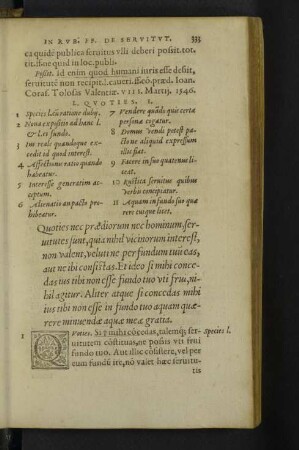 IN RVB. PP. DE SERVITVT. 333
ea quidẽ publica seruitus vlli deberi possit. tot.
tit. ff. ne quid in loc. publ.
Possit. id enim quod humani iuris esse desiit,
seruitutẽ non recipit. l. caueri. ff. eo. præd. Ioan.
Coras. Tolosas Valentiæ. VIII. Martij. 1546.
L. QVOTIES. 8.
1 Species
2 Noua expositio ad hanc l.
& Lei fundo.
3 Ius reale quandoque excedit
id quod interest.
4 Affectionis ratio quando
habeatur.
5 Interesse generatim acceptum.
6 Alienatio an pacto prohibeatur.
7 Vendere quãdo quis certæ
personæ cogatur.
8 Domus vendi potest pactione
aliquid
9 Facere in suo quatenus liceat.
10 Rustica seruitus quibus
verbis concipiatur.
11 Aquam in fundo suo quærere
cuique licet.
Quoties nec prædiorum nec hominum seruitutes
sunt, quia nihil vicinorum interest,
non valent, veluti ne per fundum tuũ eas,
aut ne ibi consistas. Et ideo si mihi concedas
ius tibi non esse fundo tuo vti frui, nihil
agitur. Aliter atque si concedas mihi
ius tibi non esse in fundo tuo aquam quærere
minuendæ aquæ meæ gratia.
1 QVoties. Si mihi cõcedas, talemq; seruitutem Species l.
cõstituas, ne possis vti frui
fundo tuo. Aut illic cõsistere, vel per
eum fundũ ire, nõ valet hæc seruitutis